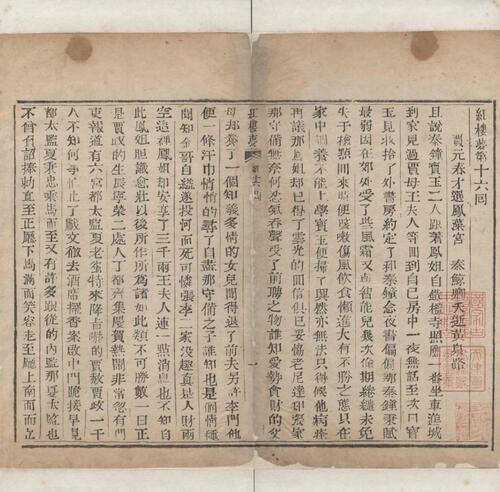 紅樓夢第十六回
賈元春才選鳳藻宮 秦鯨卿夭逝黃泉路
且說秦鍾寶玉二人跟着鳳姐自鐵檻寺照應一番坐車進城
到家見過賈母王夫人等回到自己房中一夜無話至次日寶
玉見收拾了外書房約定了和秦鍾念夜書偏偏那秦鍾秉賦
最弱因在郊外受了些風霜又與智能兒幾次偷期繾綣未免
失于檢點回來時便咳嗽傷風飲食懶進大有不勝之態只在
家中調養不能上學寶玉便掃了興然亦無法只得候他病痊
再議那鳳姐却已得了雲光的回信俱已妥協老尼達知張家
那守備無奈何忍氣吞聲受了前聘之物誰知愛勢貪財的父
紅樓夢 第十六回 一
母却養了一個知義多情的女兒聞得退了前夫另許李門他
便一條汗巾悄悄的尋了自盡那守備之子誰知也是個情種
聞知金哥自縊遂投河而死可憐張李二家沒趣真是人財兩
空這裡鳳姐却安享了三千兩王夫人連一點消息也不知自
此鳳姐胆識愈壯以後所作所為諸如此類不可勝數一日正
是賈政的生辰寧榮二處人丁都齊集慶賀熱鬧非常忽有門
吏報道有六宮都太監夏老爺特來降旨嚇的賈赦賈政一干
人不知何事忙止了戲文撤去酒席擺香案啟中門跪接早見
都太監夏秉忠乘馬而至又有許多跟從的內監那夏太監也
不曾負詔捧勅直至正廳下馬滿面笑容走至廳上南面而立